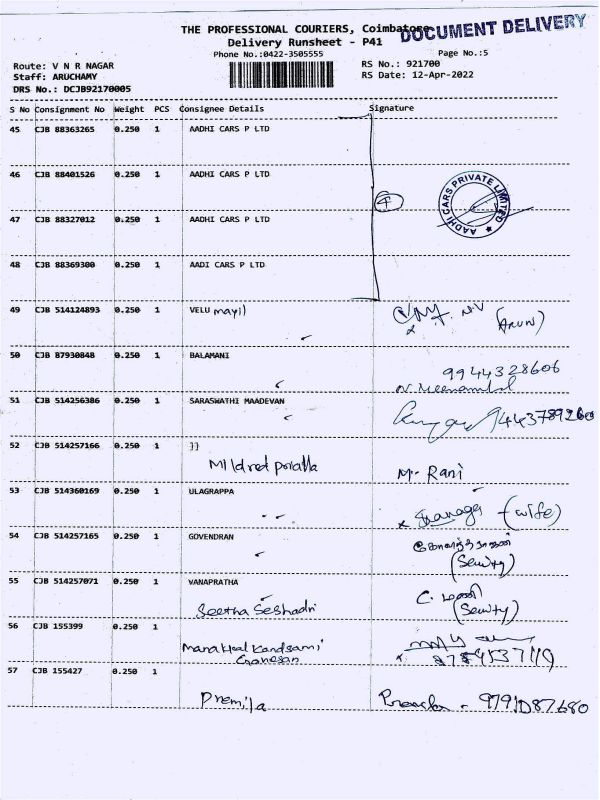 THE PROFESSIONAL COURIERS, Coimbatore
DOCUMENT DELIVERY
Delivery Runsheet - P41
Phone No.:0422-3505555
Page No.:5
Route: V N R NAGAR
RS No.: 921700
Staff: ARUCHAMY
RS Date: 12-Apr-2022
DRS No.: DCJB92170005
S No Consignment No Weight PCS Consignee Details Signature
45 CJB 88363265 0.250 1 AADHI CARS P LTD
46 CJB 88401526 0.250 1 AADHI CARS P LTD
4
AADHI CARS PRIVATE LIMITED
47 CJB 88327012 0.250 1 AADHI CARS P LTD
48 CJB 88369300 0.250 1 AADI CARS P LTD
49 CJB 514124893 0.250 1 VELU mayil
(Arun)
50 CJB 87930848 0.250 1 BALAMANI
9944328606
N. Meenambal
51 CJB 514256386 0.250 1 SARASWATHI MAADEVAN
9443789260
52 CJB 514257166 0.250 1 ]]
Mildred
M. Rani
53 CJB 514360169 0.250 1 ULAGRAPPA
(wife)
54 CJB 514257165 0.250 1 GOVENDRAN
(Security)
55 CJB 514257071 0.250 1 VANAPRATHA
Seetha Seshadri
C. மணி
(Security)
56 CJB 155399 0.250 1
Ganesan
57 CJB 155427 0.250 1
Premila